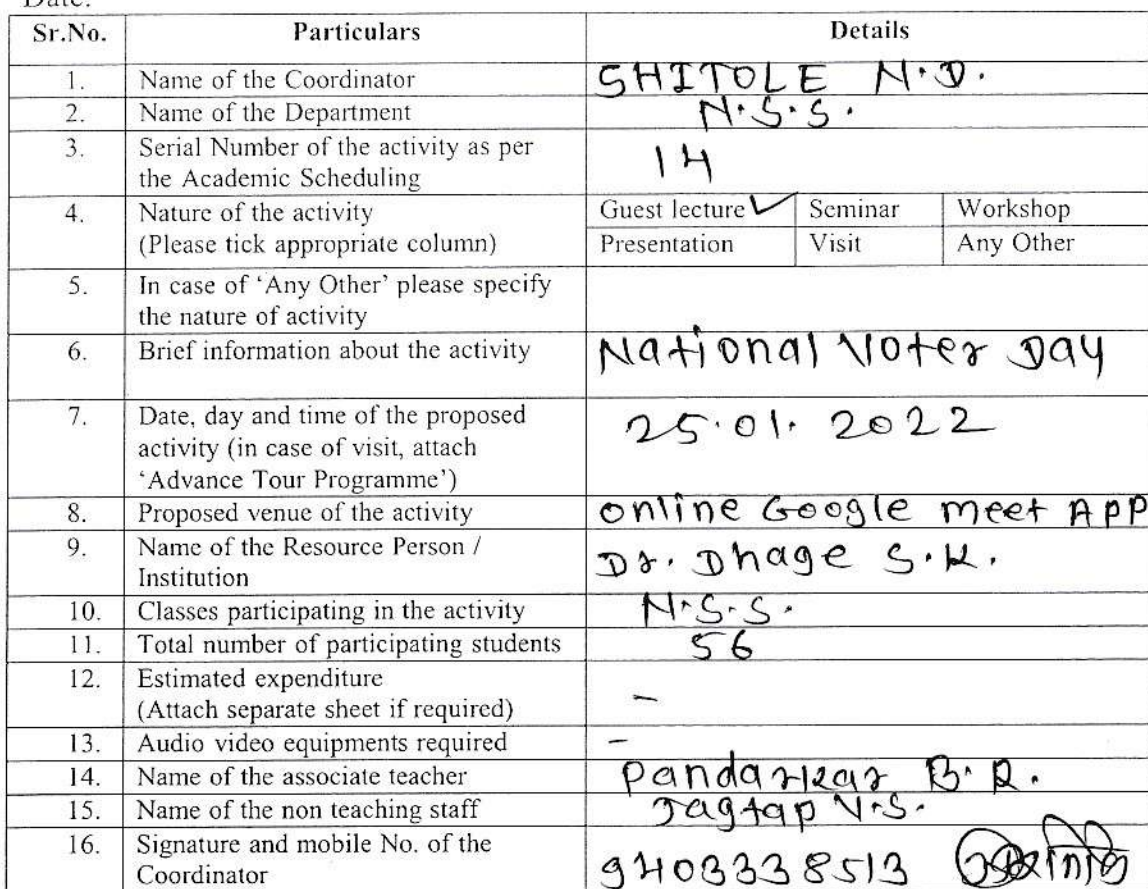 Date:
Sr.No. Particulars Details
1. Name of the Coordinator SHITOLE N.D.
2. Name of the Department N.S.S.
3. Serial Number of the activity as per 14
the Academic Scheduling
4. Nature of the activity Guest lecture ✓ Seminar Workshop
(Please tick appropriate column) Presentation Visit Any Other
5. In case of ‘Any Other’ please specify
the nature of activity
6. Brief information about the activity National Voter Day
7. Date, day and time of the proposed 25.01.2022
activity (in case of visit, attach
‘Advance Tour Programme’)
8. Proposed venue of the activity online Google meet App
9. Name of the Resource Person / Dr. Dhage S.K.
Institution
10. Classes participating in the activity N.S.S.
11. Total number of participating students 56
12. Estimated expenditure -
(Attach separate sheet if required)
13. Audio video equipments required -
14. Name of the associate teacher Pandarkar B.R.
15. Name of the non teaching staff Jagtap V.S.
16. Signature and mobile No. of the 9403338513
Coordinator